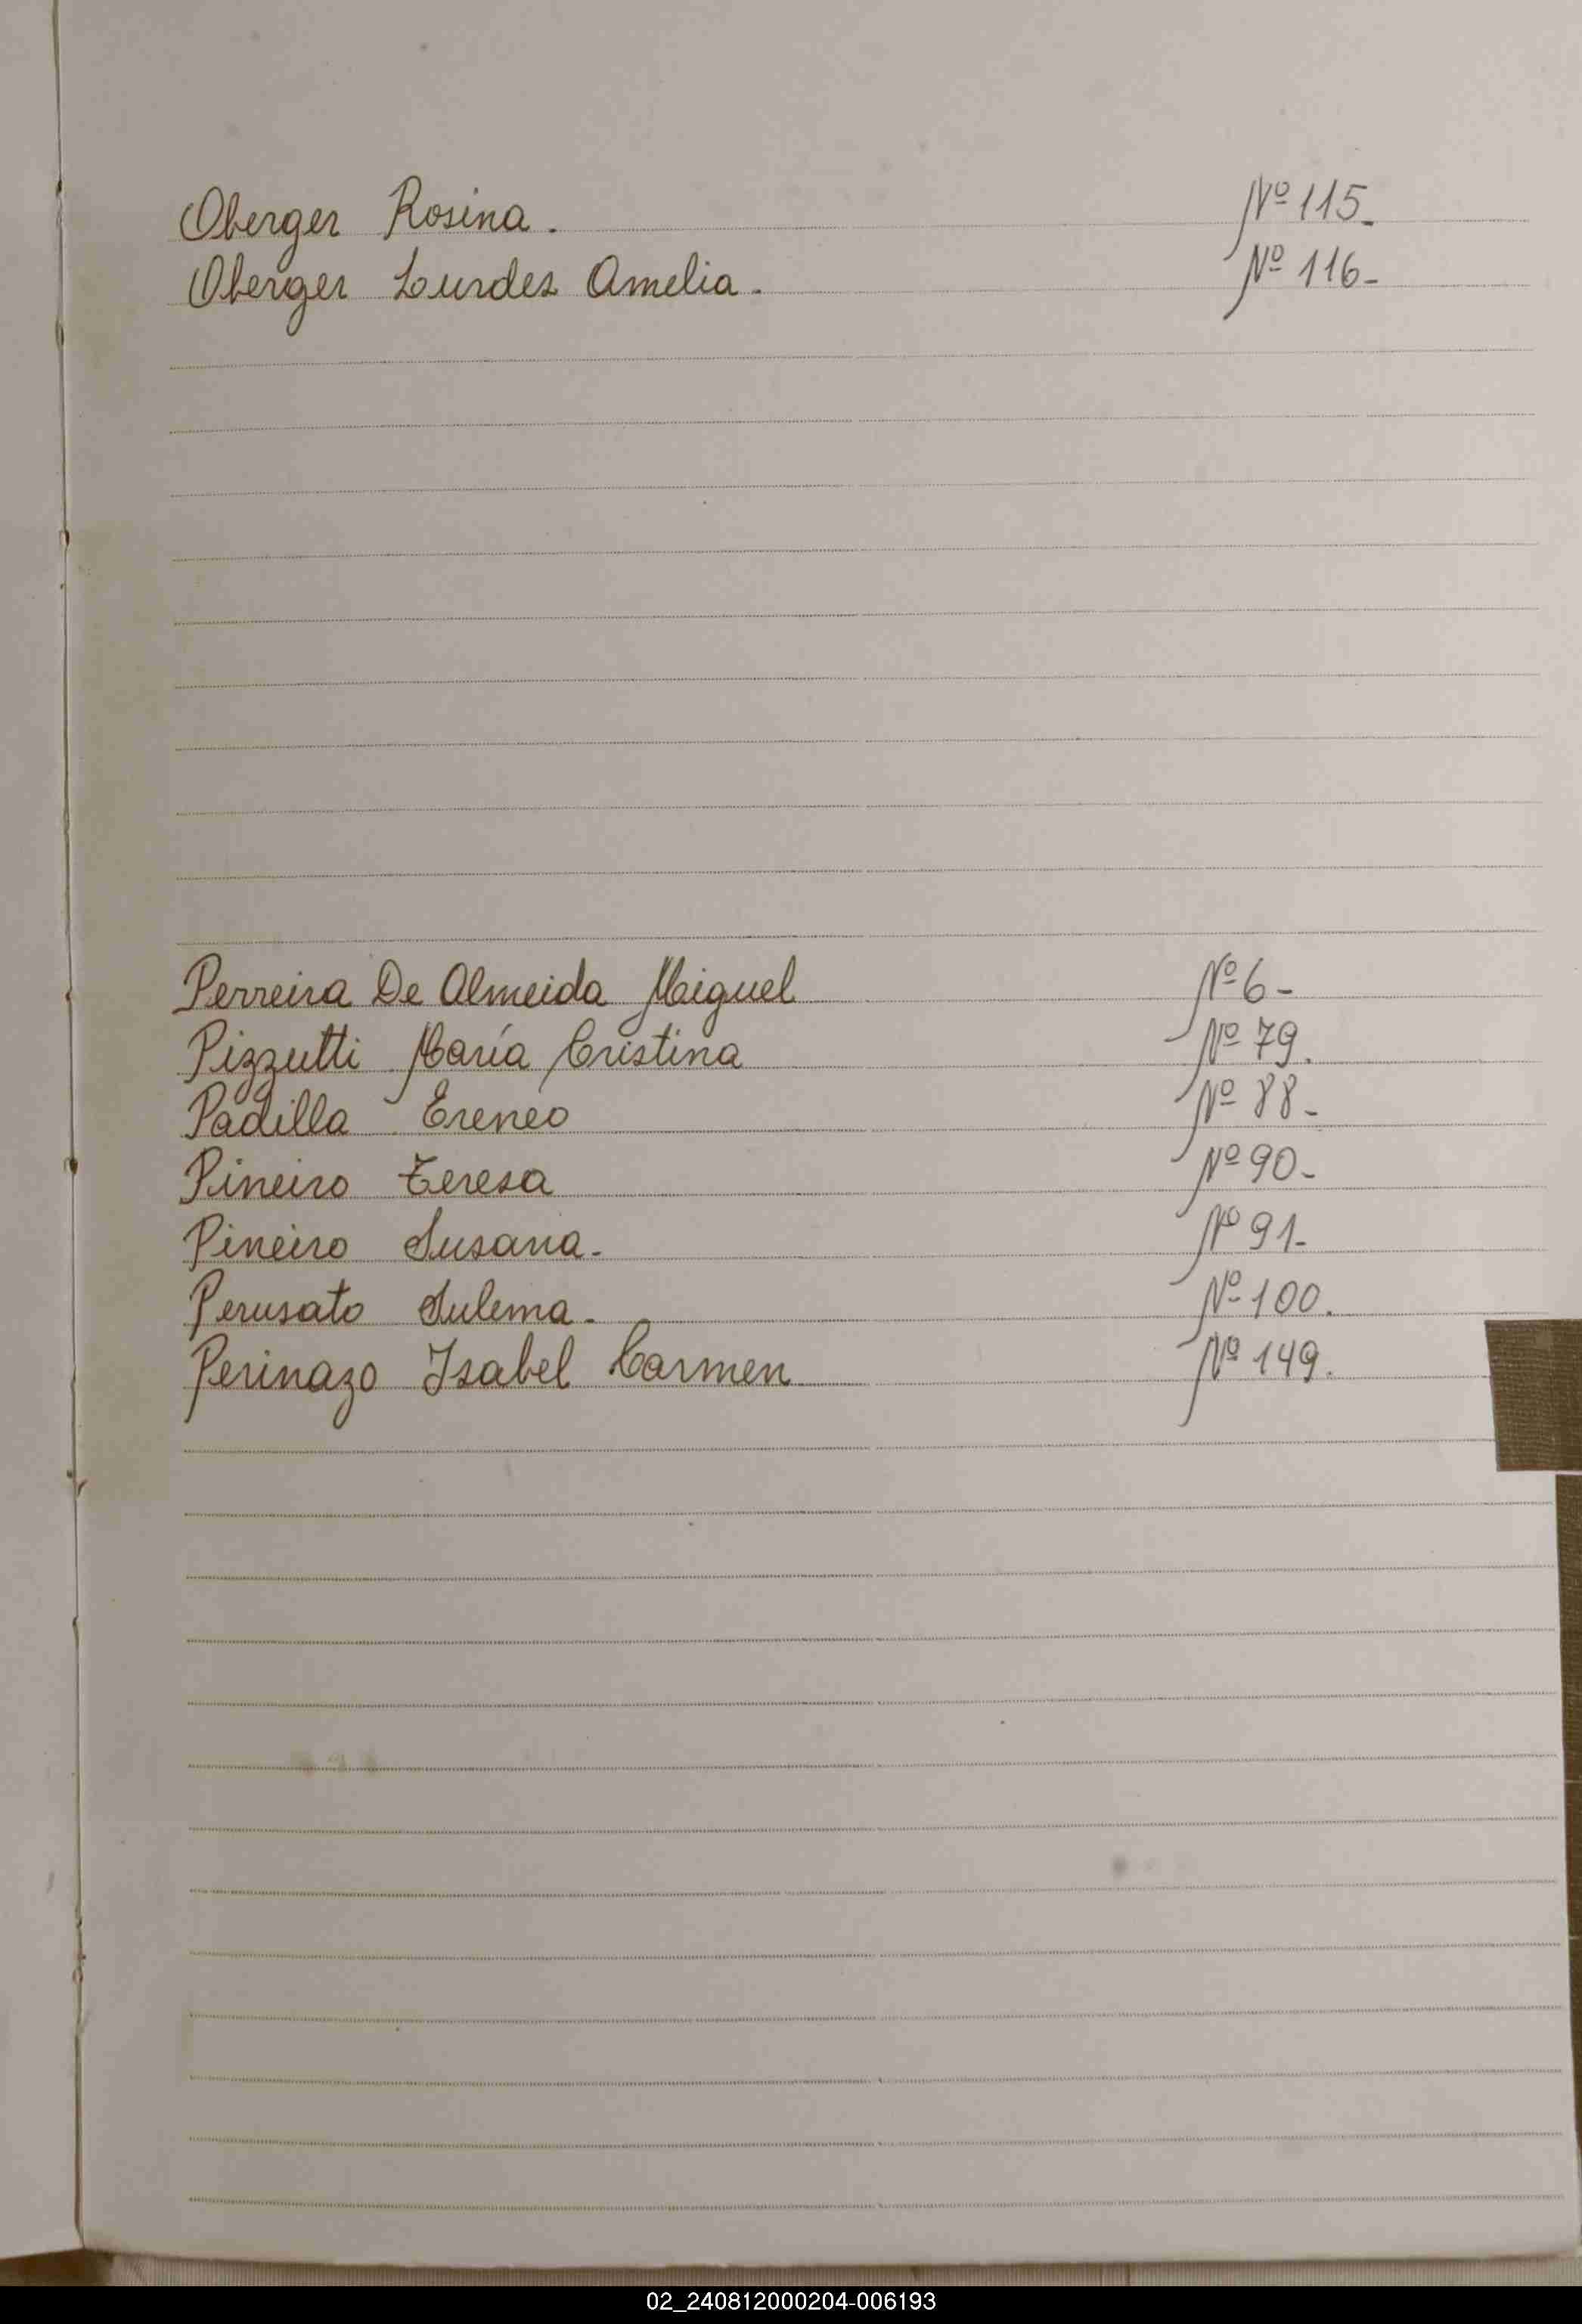 Oberger Rosina. Nº 115.
Oberger Lurdes Amelia. Nº 116-
Perreira De Almeida Miguel Nº 6-
Pizzutti María Cristina Nº 79.
Padilla Ereneo Nº 88-
Pineiro Teresa Nº 90-
Pineiro Susana- Nº 91-
Perusato Sulema- Nº 100.
Perinazo Isabel Carmen Nº 149.
02_240812000204-006193